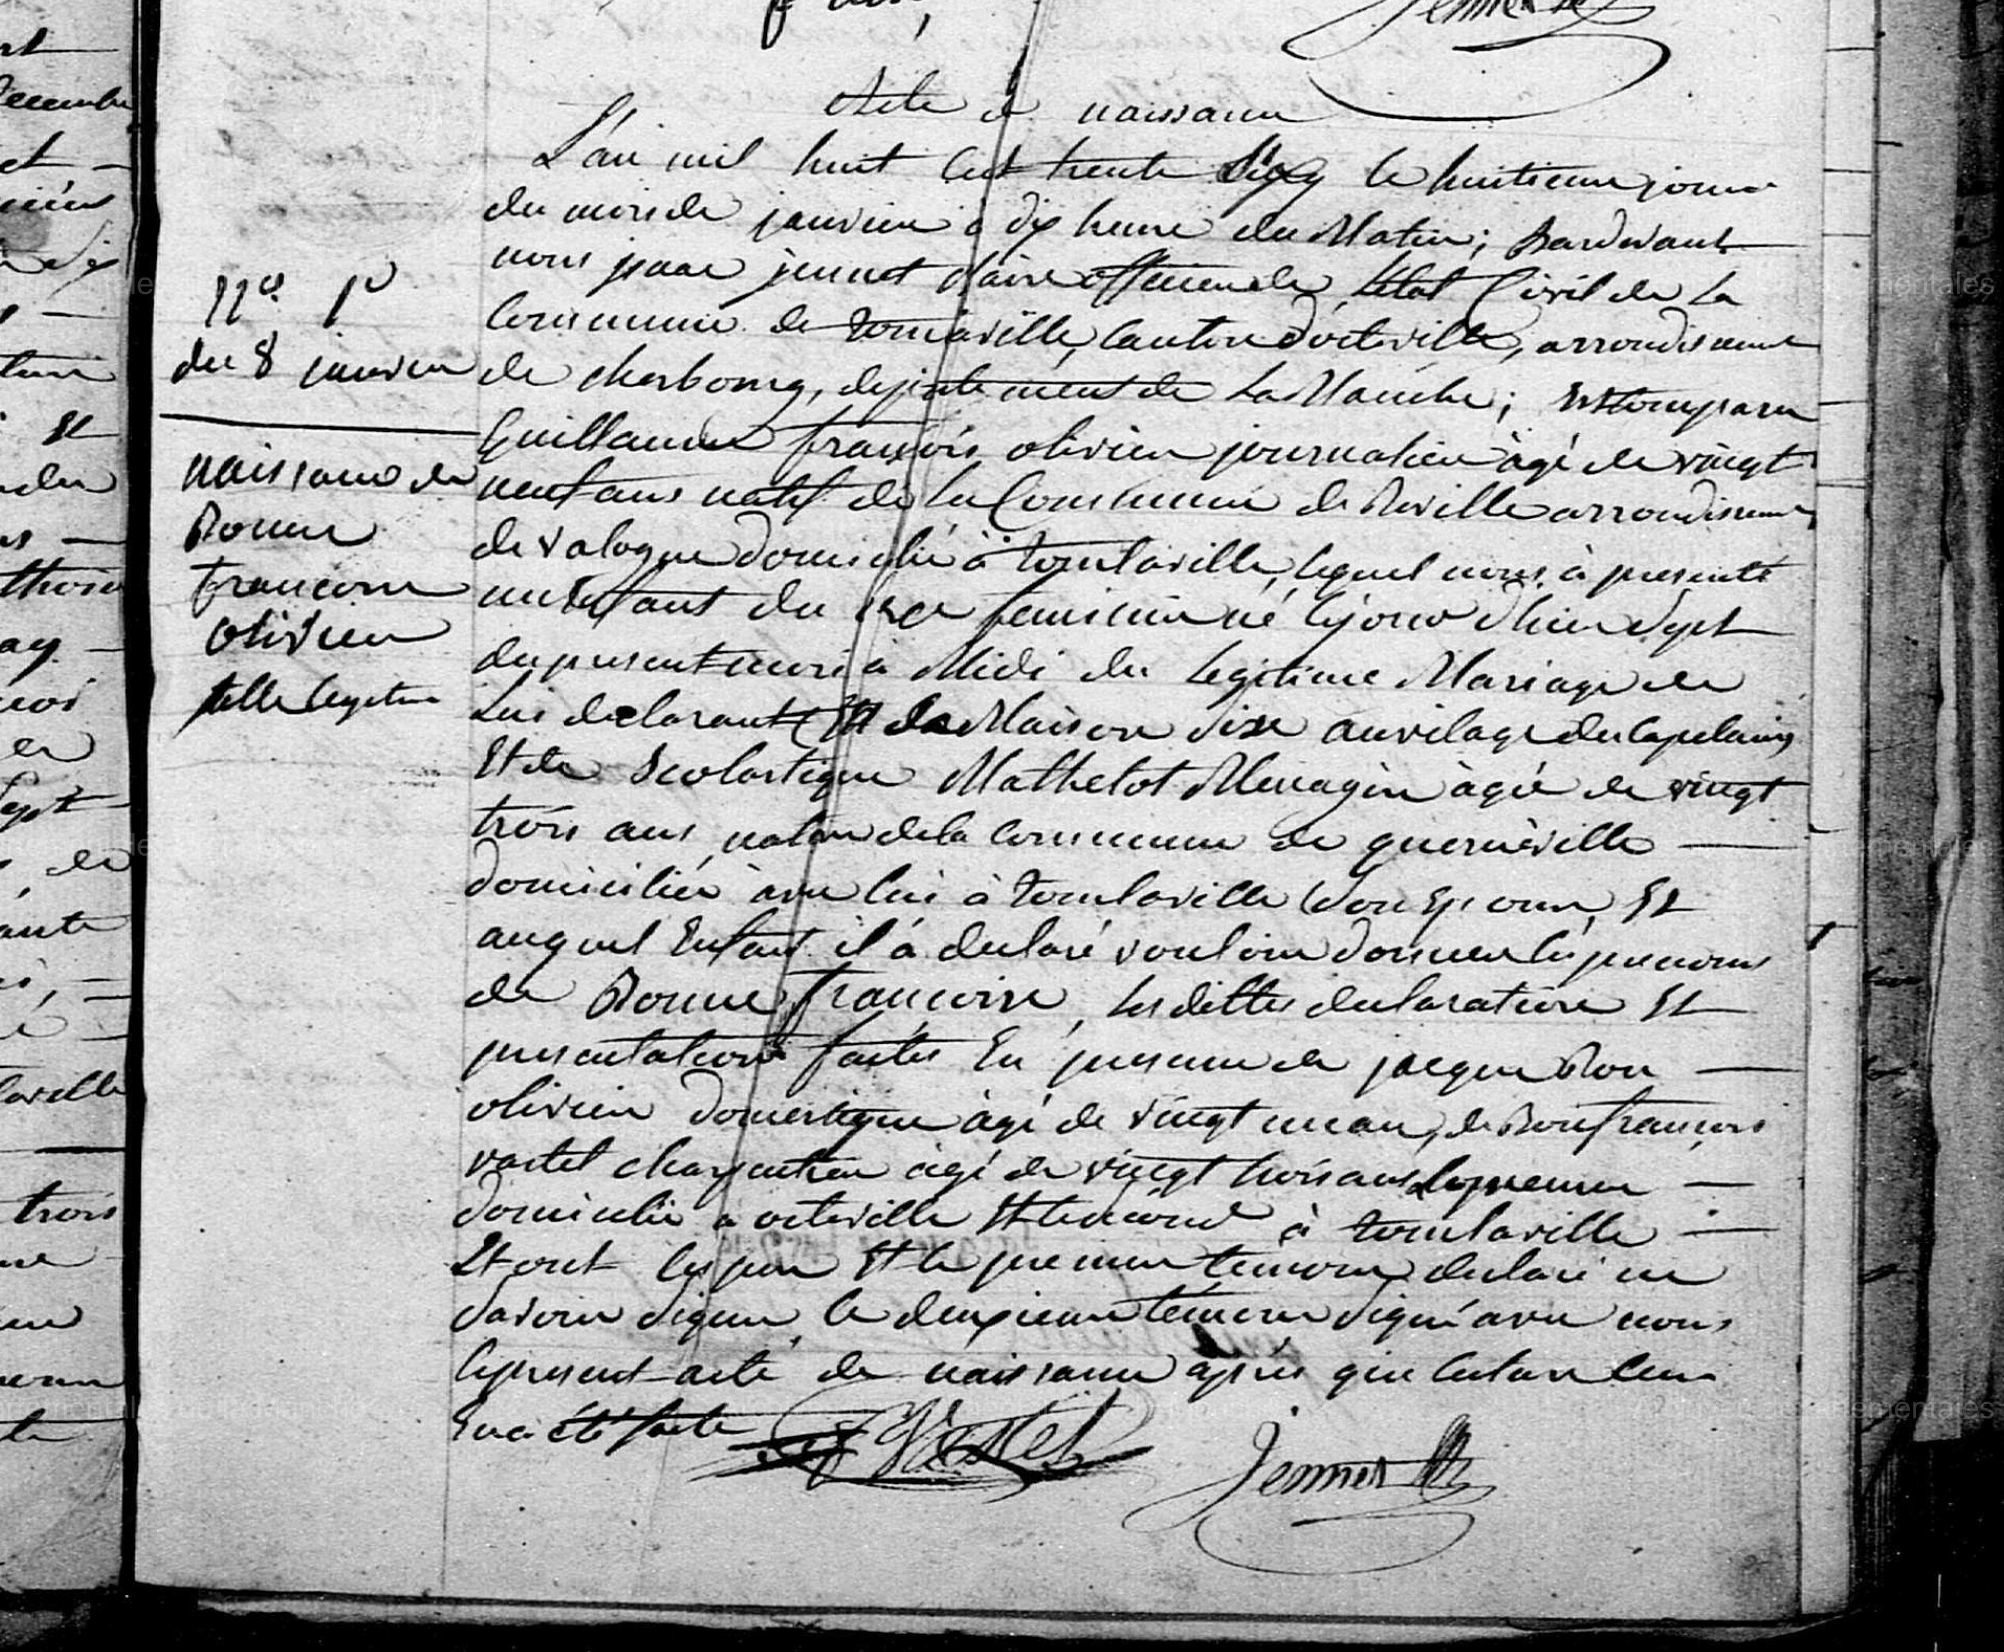 Acte de naissance
L'an mil huit cent trente six le huitieme jour
du mois de janvier à dix heure du Matin; Pardevant
nous jsaac jennet Maire officier de L'état Civil de La
Commune de tourlaville, canton d'octeville, arrondissement
de cherbourg, departement de La Manche; Est comparu
Guillaume françois olivier journalier âgé de vingt
neuf ans natif de la Commune de Reville arrondissement
de valogne domicilié à tourlaville, lequel nous à presenté
un Enfant du sexe feminin né le jour d'hier sept
du present mois à Midi du Legitime Mariage de
Lui declarant Et de Maison sise au vilage des Capelains
Et de Scolastique Mathelot Menagère âgée de vingt
trois ans, native de la Commune de querneville
domiciliée avec lui à tourlaville son Epouse, Et
auquel Enfant il à declaré vouloir donner les prenoms
de Bonne françoise, Les dittes declaration Et
presentation faites En presence de jacque Bon
olivier domestique âgé de vingt un an, de Bon françois
vastel charpentier âgé de vingt trois ans le premier
domicilié a octeville Et le second à tourlaville
Et ont le pere Et le premier temoin declaré ne
Savoir signer, le deuxieme témoin signé avec nous
le present acte de naissance après que lecture leur
En a été faite Vastel Jennet
N.o 1.o
du 8 janvier
naissance de
Bonne
francoise
olivier
fille legitime